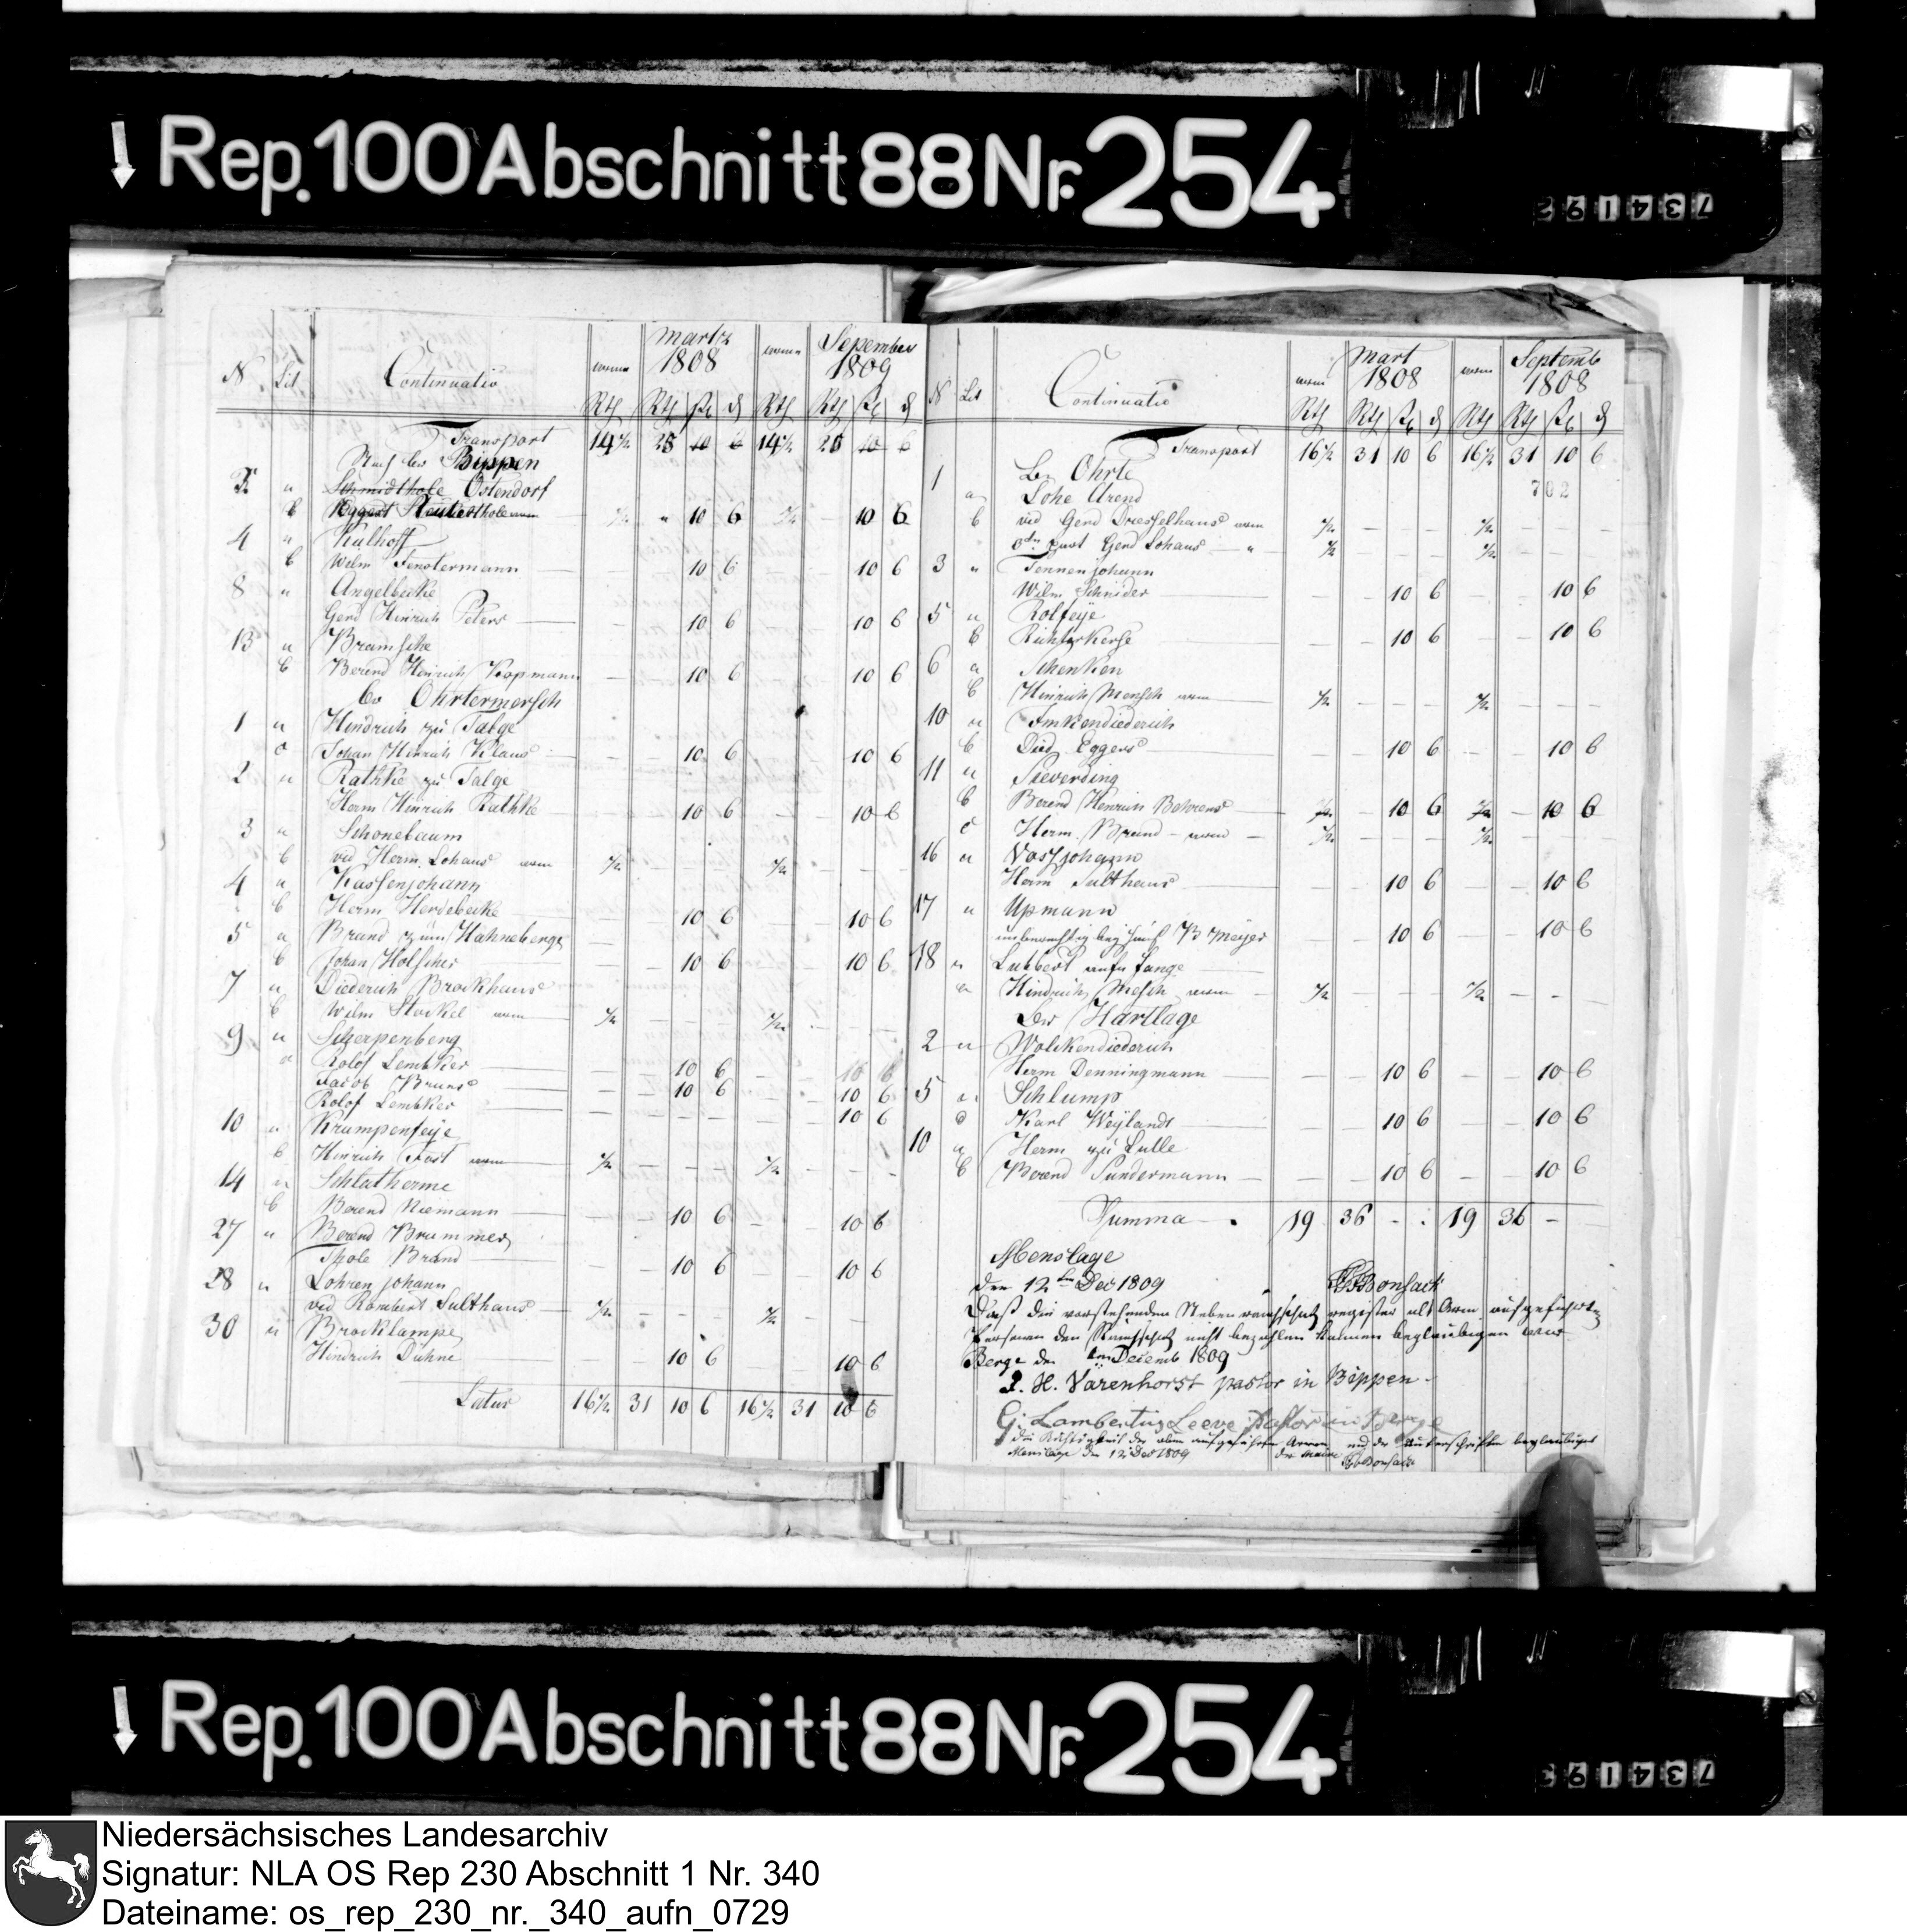 Rep. 100 Abschnitt 88 Nr. 254
734192
N Lit Continuatio arm martz 1808 arm September 1809
Rth Rth ß d Rth Rth ß d
Transport 14½ 25 10 6 14½ 25 10 6
Bippen
a Schmidthole Ostendorf
b 10 6 10 6
4 a Kulhoff
b Wilm Fenstermann 10 6 10 6
8 a Angelbecke
Gerd Hinrich Peters 10 6 10 6
13 a Bramsche
b Berend Hinrich Kopmann 10 6 10 6
Ohrtermersch
1 a Hindrich zu Talge
c Johan Hinrich Klaus 10 6 10 6
2 a Rathke zu Talge
Herm Hinrich Rathke 10 6 10 6
3 a Schonebaum
b vid Herm. Lohaus arm ½ ½
4 a Kassenjohann
b Herm Herdebecke 10 6 10 6
5 a Brand zum Hahneberge
b Johan Holscher 10 6 10 6
7 a Diederich Brockhaus
b Wilm Stockel arm ½ ½
9 a Scherpenberg
c Rolof Lembker 10 6 10 6
Jacob Bruns 10 6 10 6
Rolof Lembker 10 6
10 a Krumpenfeye
b Hinrich Fast arm ½ ½
14 a Schlatherme
b Berend Niemann 10 6 10 6
27 a Berend Brummer
Thole Brand 10 6 10 6
28 a Lohrenjohann
vid Rombert Sulthaus ½ ½
30 a Brocklampe
Hindrich Dühne 10 6 10 6
Latus 16½ 31 10 6 16½ 31 10 6
N Lit Continuatio arm Mart 1808 arm Septemb 1808
Rth Rth ß d Rth Rth ß d
Transport 16½ 31 10 6 16½ 31 10 6
Ohrte
702
1 a Lohe Arend
b vid Gerd Dresselhaus arm ½ ½
Gerd Lohaus ½ ½
3 a Tennenjohann
Wilm Schnider 10 6 10 6
5 a Rolfeye
b Richterkerse 10 6 10 6
6 a Schenken
b Hinrich Mensch arm ½ ½
10 a Imkendiederich
b Died Eggers 10 6 10 6
11 a Sieverding
b Berend Henrich Behrens 10 6 10 6
c Herm Brand arm ½ ½
16 a Vossjohann
Herm Sulthaus 10 6 10 6
17 a Upmann
B Meyer 10 6 10 6
18 a Lubbert aufn Fange
a Hindrich Mesch arm ½ ½
Hartlage
2 a Wolckendiederich
Herm Denningmann 10 6 10 6
5 a Schlump
c Karl Weylandt 10 6 10 6
10 a Herm zu Lulle
b Berend Sundermann 10 6 10 6
Summa 19 36 - - 19 36 -
Menslage
den 12ten Dec 1809 Bonsack
Daß die vorstehenden
Personen den Rauchschatz nicht bezahlen können beglaubigen
Berge den Decemb 1809
J. H. Varenhorst pastor in Bippen
G. Lambertus Leeve Pastor in Berge
Menslage den 12 Dec 1809 der Maire Bonsack
Rep. 100 Abschnitt 88 Nr. 254
734193
Niedersächsisches Landesarchiv
Signatur: NLA OS Rep 230 Abschnitt 1 Nr. 340
Dateiname: os_rep_230_nr._340_aufn_0729